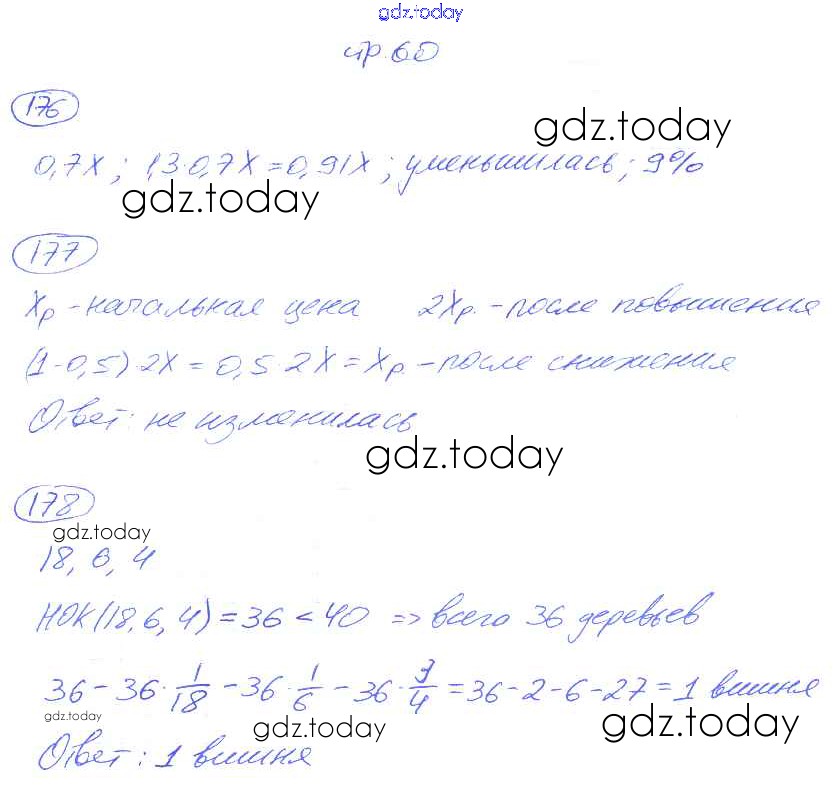 gdz.today
стр. 60
176
gdz.today
0,7x; 1,3·0,7x=0,91x; уменьшилась; 9%
gdz.today
177
xр - начальная цена 2xр. - после повышения
(1-0,5)·2x = 0,5·2x = xр. - после снижения
Ответ: не изменилась
gdz.today
178
gdz.today
18, 6, 4
НОК(18,6,4)=36<40 => всего 36 деревьев
36 - 36·1/18 - 36·1/6 - 36·3/4 = 36-2-6-27 = 1 вишня
gdz.today
gdz.today
gdz.today
Ответ: 1 вишня